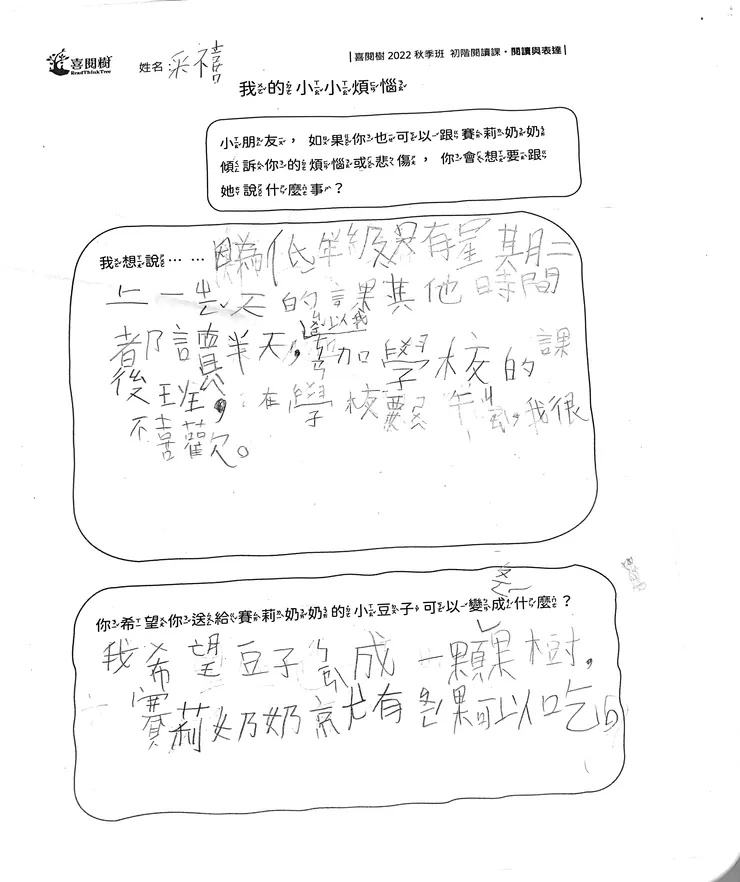 喜閱樹
ReadThinkTree
姓名 采禧
|喜閱樹 2022 秋季班 初階閱讀課・閱讀與表達|
我的小小煩惱
小朋友，如果你也可以跟賽莉奶奶
傾訴你的煩惱或悲傷，你會想要跟
她說什麼事？
我想說…… 因為低年級只有星期二
上一ㄓㄥˇ天的課其他時間
都讀半天，所以我
參加學校的課
後班，在學校
我很
不喜歡。
你希望你送給賽莉奶奶的小豆子可以變成什麼？
我希望豆子ㄅㄧㄢˋ成一顆果樹，
賽莉奶奶就有水果可以吃